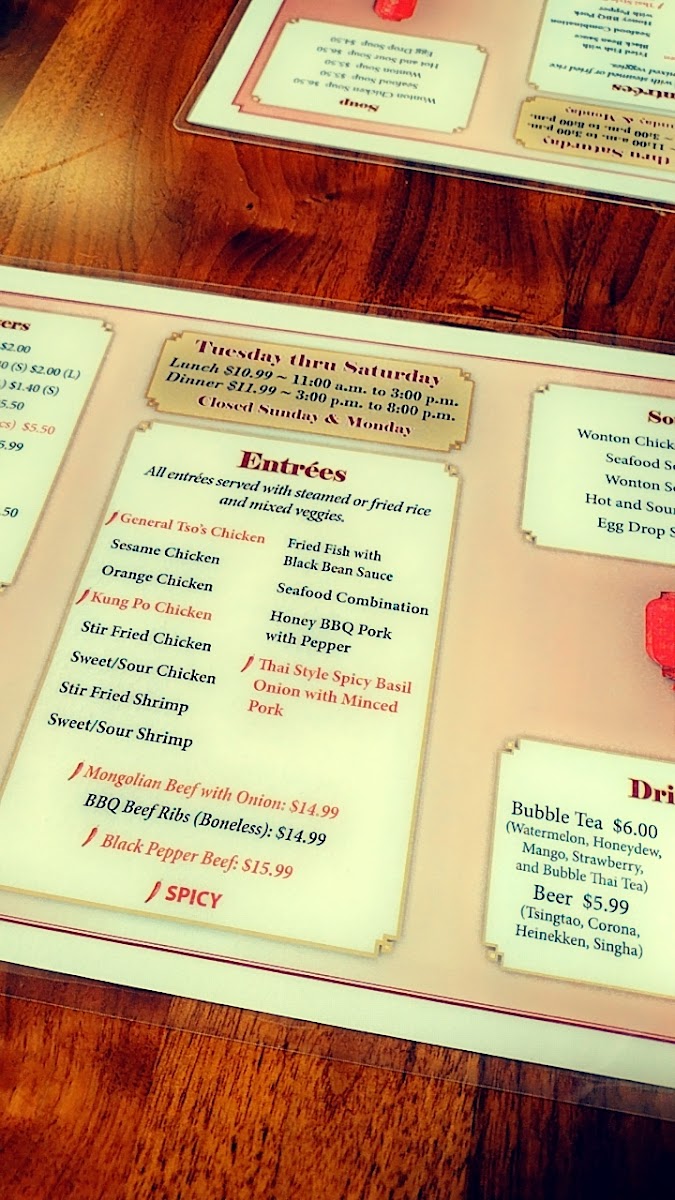 Egg Drop Soup $4.50
Hot and Sour Soup $6.50
Wonton Soup $5.50
Seafood Soup $5.50
Wonton Chicken Soup $6.50
Soup
with Pepper
Honey BBQ Pork
Seafood Combination
Black Bean Sauce
Fried Fish with
mixed veggies.
with steamed or fried rice
ntrées
nday & Monday
3:00 p.m. to 8:00 p.m.
11:00 a.m. to 3:00 p.m.
thru Saturday
ers
$2.00
0 (S) $2.00 (L)
) $1.40 (S)
5.50
cs) $5.50
5.99
.50
Tuesday thru Saturday
Lunch $10.99 ~ 11:00 a.m. to 3:00 p.m.
Dinner $11.99 ~ 3:00 p.m. to 8:00 p.m.
Closed Sunday & Monday
Entrées
All entrées served with steamed or fried rice
and mixed veggies.
General Tso's Chicken
Sesame Chicken
Orange Chicken
Kung Po Chicken
Stir Fried Chicken
Sweet/Sour Chicken
Stir Fried Shrimp
Sweet/Sour Shrimp
Fried Fish with
Black Bean Sauce
Seafood Combination
Honey BBQ Pork
with Pepper
Thai Style Spicy Basil
Onion with Minced
Pork
Mongolian Beef with Onion: $14.99
BBQ Beef Ribs (Boneless): $14.99
Black Pepper Beef: $15.99
SPICY
So
Wonton Chick
Seafood So
Wonton S
Hot and Sour
Egg Drop S
Dri
Bubble Tea $6.00
(Watermelon, Honeydew,
Mango, Strawberry,
and Bubble Thai Tea)
Beer $5.99
(Tsingtao, Corona,
Heinekken, Singha)